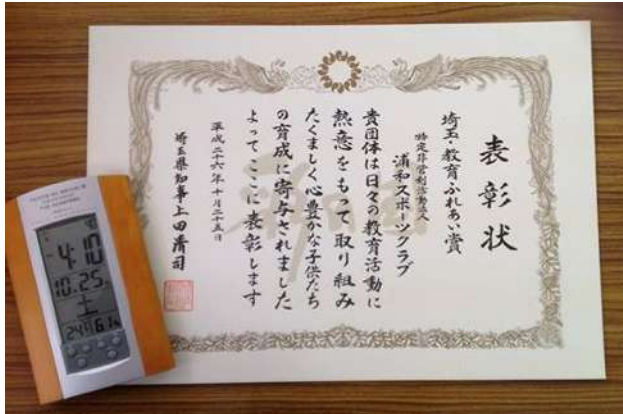 表彰状
埼玉・教育ふれあい賞
特定非営利活動法人
浦和スポーツクラブ
貴団体は日々の教育活動に
熱意をもって取り組み
たくましく心豊かな子供たち
の育成に寄与されました
よってここに表彰します
平成二十六年十月二十五日
埼玉県知事上田清司
4:10
10.25
土